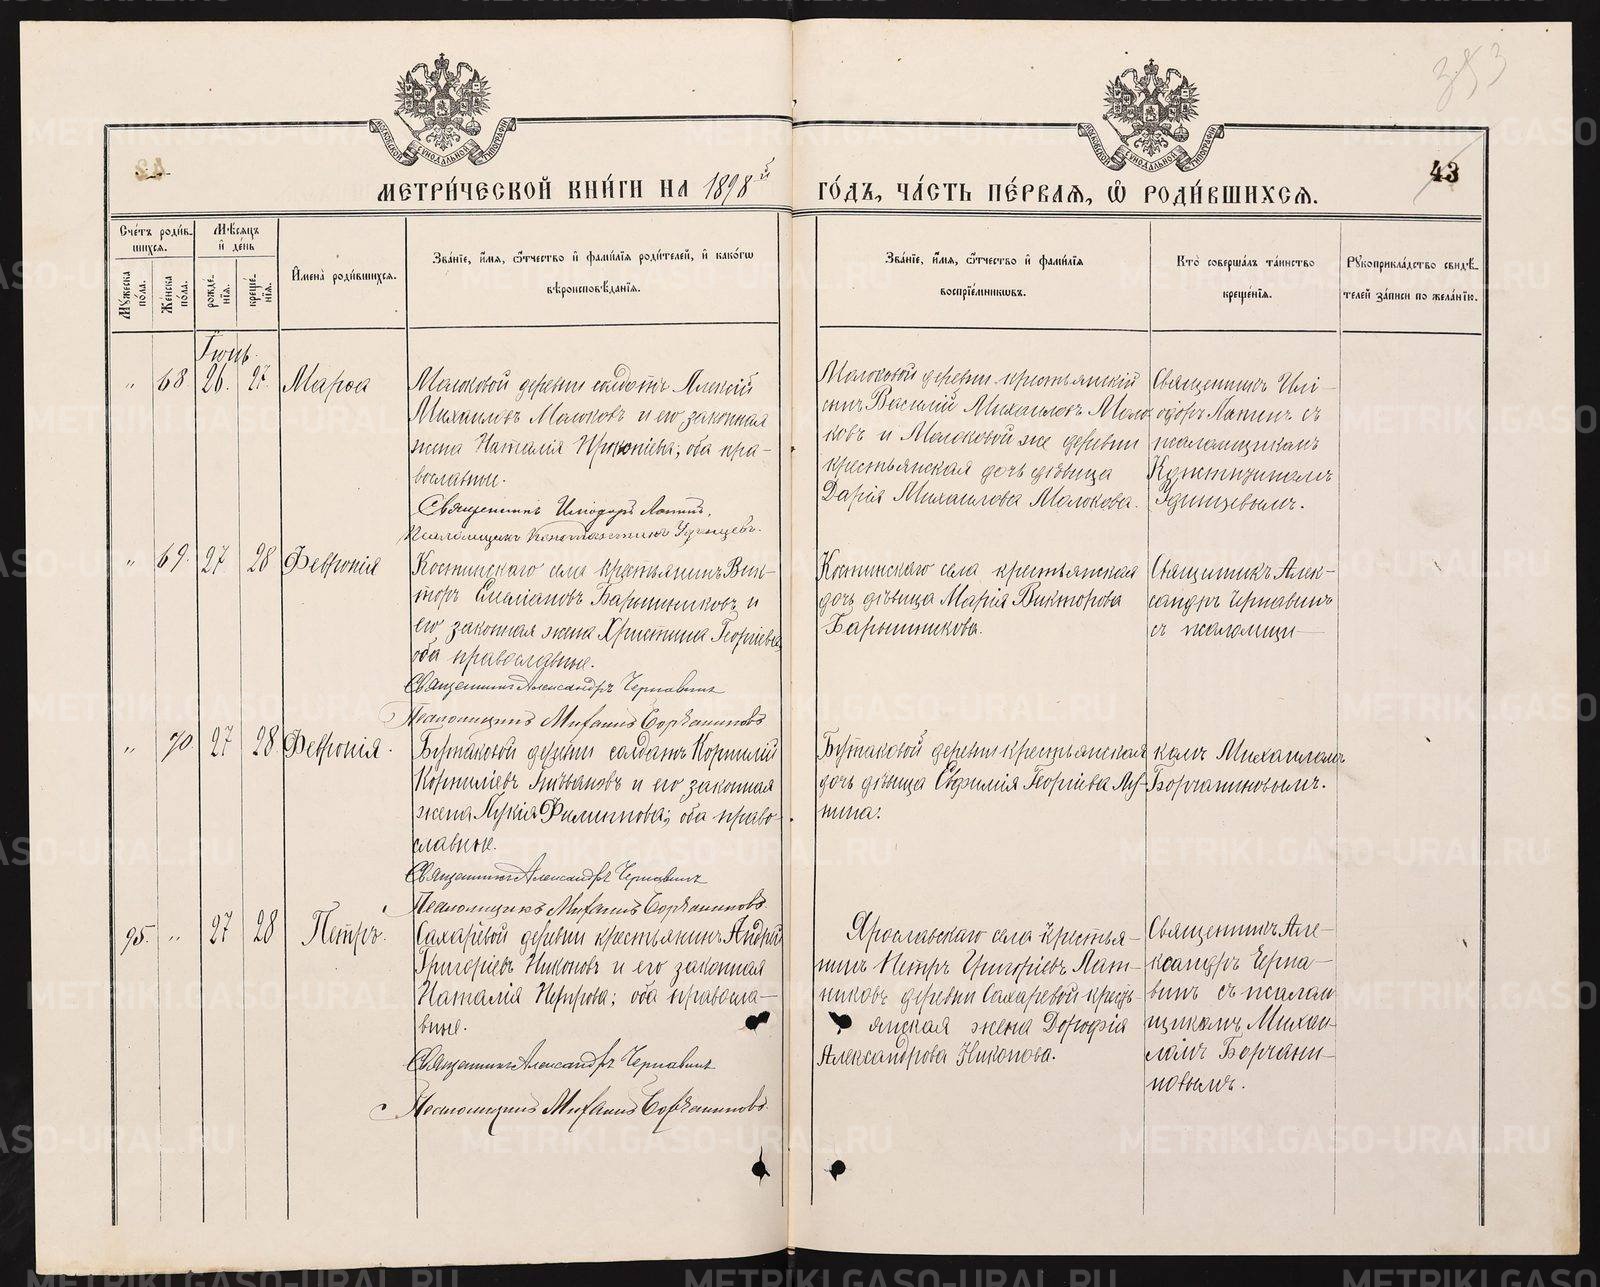 353
43
МОСКОВСКОЙ СѴНОДАЛЬНОЙ ТИПОГРАФІИ
МОСКОВСКОЙ СѴНОДАЛЬНОЙ ТИПОГРАФІИ
МЕТРИ́ЧЕСКОЙ КНИ́ГИ НА 1898й ГО́ДЪ, ЧА́СТЬ ПЕ́РВАЯ, Ѡ҆ РОДИ́ВШИХСЯ.
Сче́тъ роди́в-
шихся.
Мꙋ́жеска по́ла.
Же́нска по́ла.
Мѣ́сяцъ
и҆ де́нь
рожде́-
нїя.
креще́-
нїя.
И҆мена̀ роди́вшихся.
Зва́нїе, и҆́мя, ѻ҆́тчество и҆ фами́лїя роди́телей, и҆ како́гѡ
вѣроисповѣ́данїя.
Зва́нїе, и҆́мя, ѻ҆́тчество и҆ фами́лїя
воспрїе́мникѡвъ.
Кто̀ соверша́лъ та́инство
креще́нїя.
Рꙋкоприкла́дство свидѣ́-
телей за́писи по жела́нїю.
Іюнь.
" 68 26. 27. Марѳа
Молоковой деревни солдатъ Алексѣй
Михаиловъ Молоковъ и его законная
жена Наталія Прокопіева; оба пра-
вославные.
Священникъ Иліодоръ Лапинъ.
Псаломщикъ Константинъ Удинцевъ.
Молоковой деревни крестьянскій
сынъ Василій Михаиловъ Моло-
ковъ и Молоковой же деревни
крестьянская дочь дѣвица
Дарія Михаилова Молокова.
Священникъ Илі-
одоръ Лапинъ съ
псаломщикомъ
Константиномъ
Удинцевымъ.
" 69. 27 28 Февронія
Костинскаго села крестьянинъ Вик-
торъ Емеліановъ Барышниковъ и
его законная жена Христина Георгіева,
оба православные.
Священникъ Александръ Чернавинъ
Псаломщикъ Михаилъ Борчаниновъ
Костинскаго села крестьянская
дочь дѣвица Марія Викторова
Барышникова.
Священникъ Алек-
сандръ Чернавинъ
съ псаломщи-
" 70 27 28 Февронія.
Бутаковой деревни солдатъ Корнилій
Корниліевъ и его законная
жена Лукія Филиппова; оба право-
славные.
Священникъ Александръ Чернавинъ
Псаломщикъ Михаилъ Борчаниновъ.
Бутаковой деревни крестьянская
дочь дѣвица Евфимія Георгіева Лу-
нина.
комъ Михаиломъ
Борчаниновымъ.
95. " 27 28 Петръ.
Сохаревой деревни крестьянинъ Андрей
Григоріевъ Никоновъ и его законная
Наталія Петрова; оба правосла-
вные.
Священникъ Александръ Чернавинъ
Псаломщикъ Михаилъ Борчаниновъ.
Ярославскаго села крестья-
нинъ Петръ Григоріевъ Лат-
никовъ деревни Сохаревой кресть-
янская жена Дорофія
Александрова Никонова.
Священникъ Але-
ксандръ Черна-
винъ съ псалом-
щикомъ Михаи-
ломъ Борчани-
новымъ.
METRIKI.GASO-URAL.RU